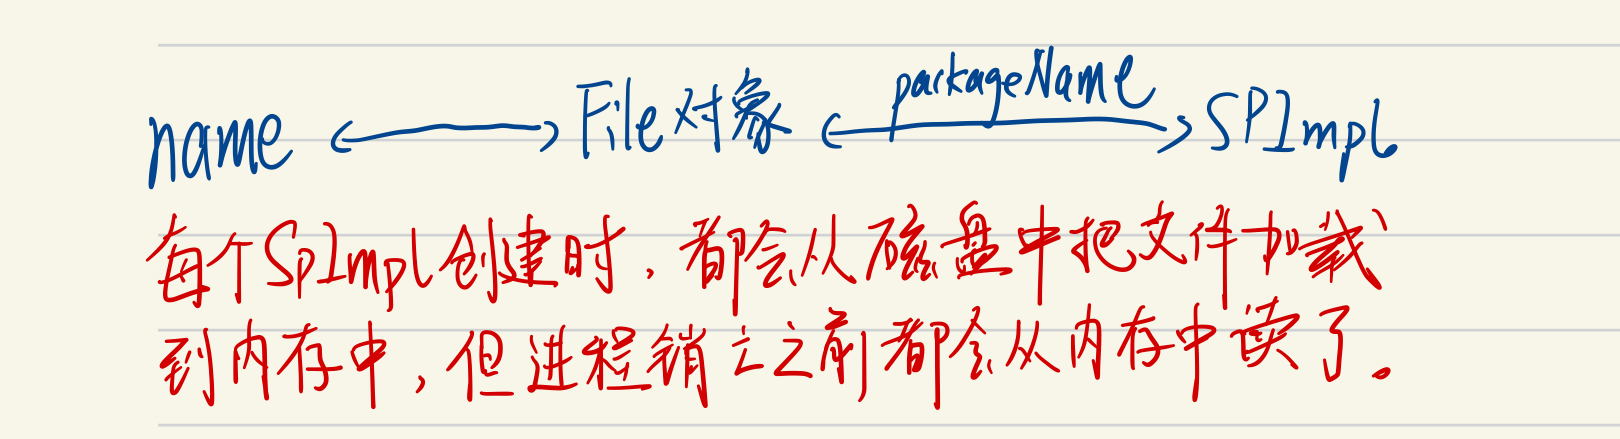 name <——> File对象 <—packageName—> SPImpl
每个SpImpl创建时,都会从磁盘中把文件加载
到内存中,但进程销亡之前都会从内存中读了。